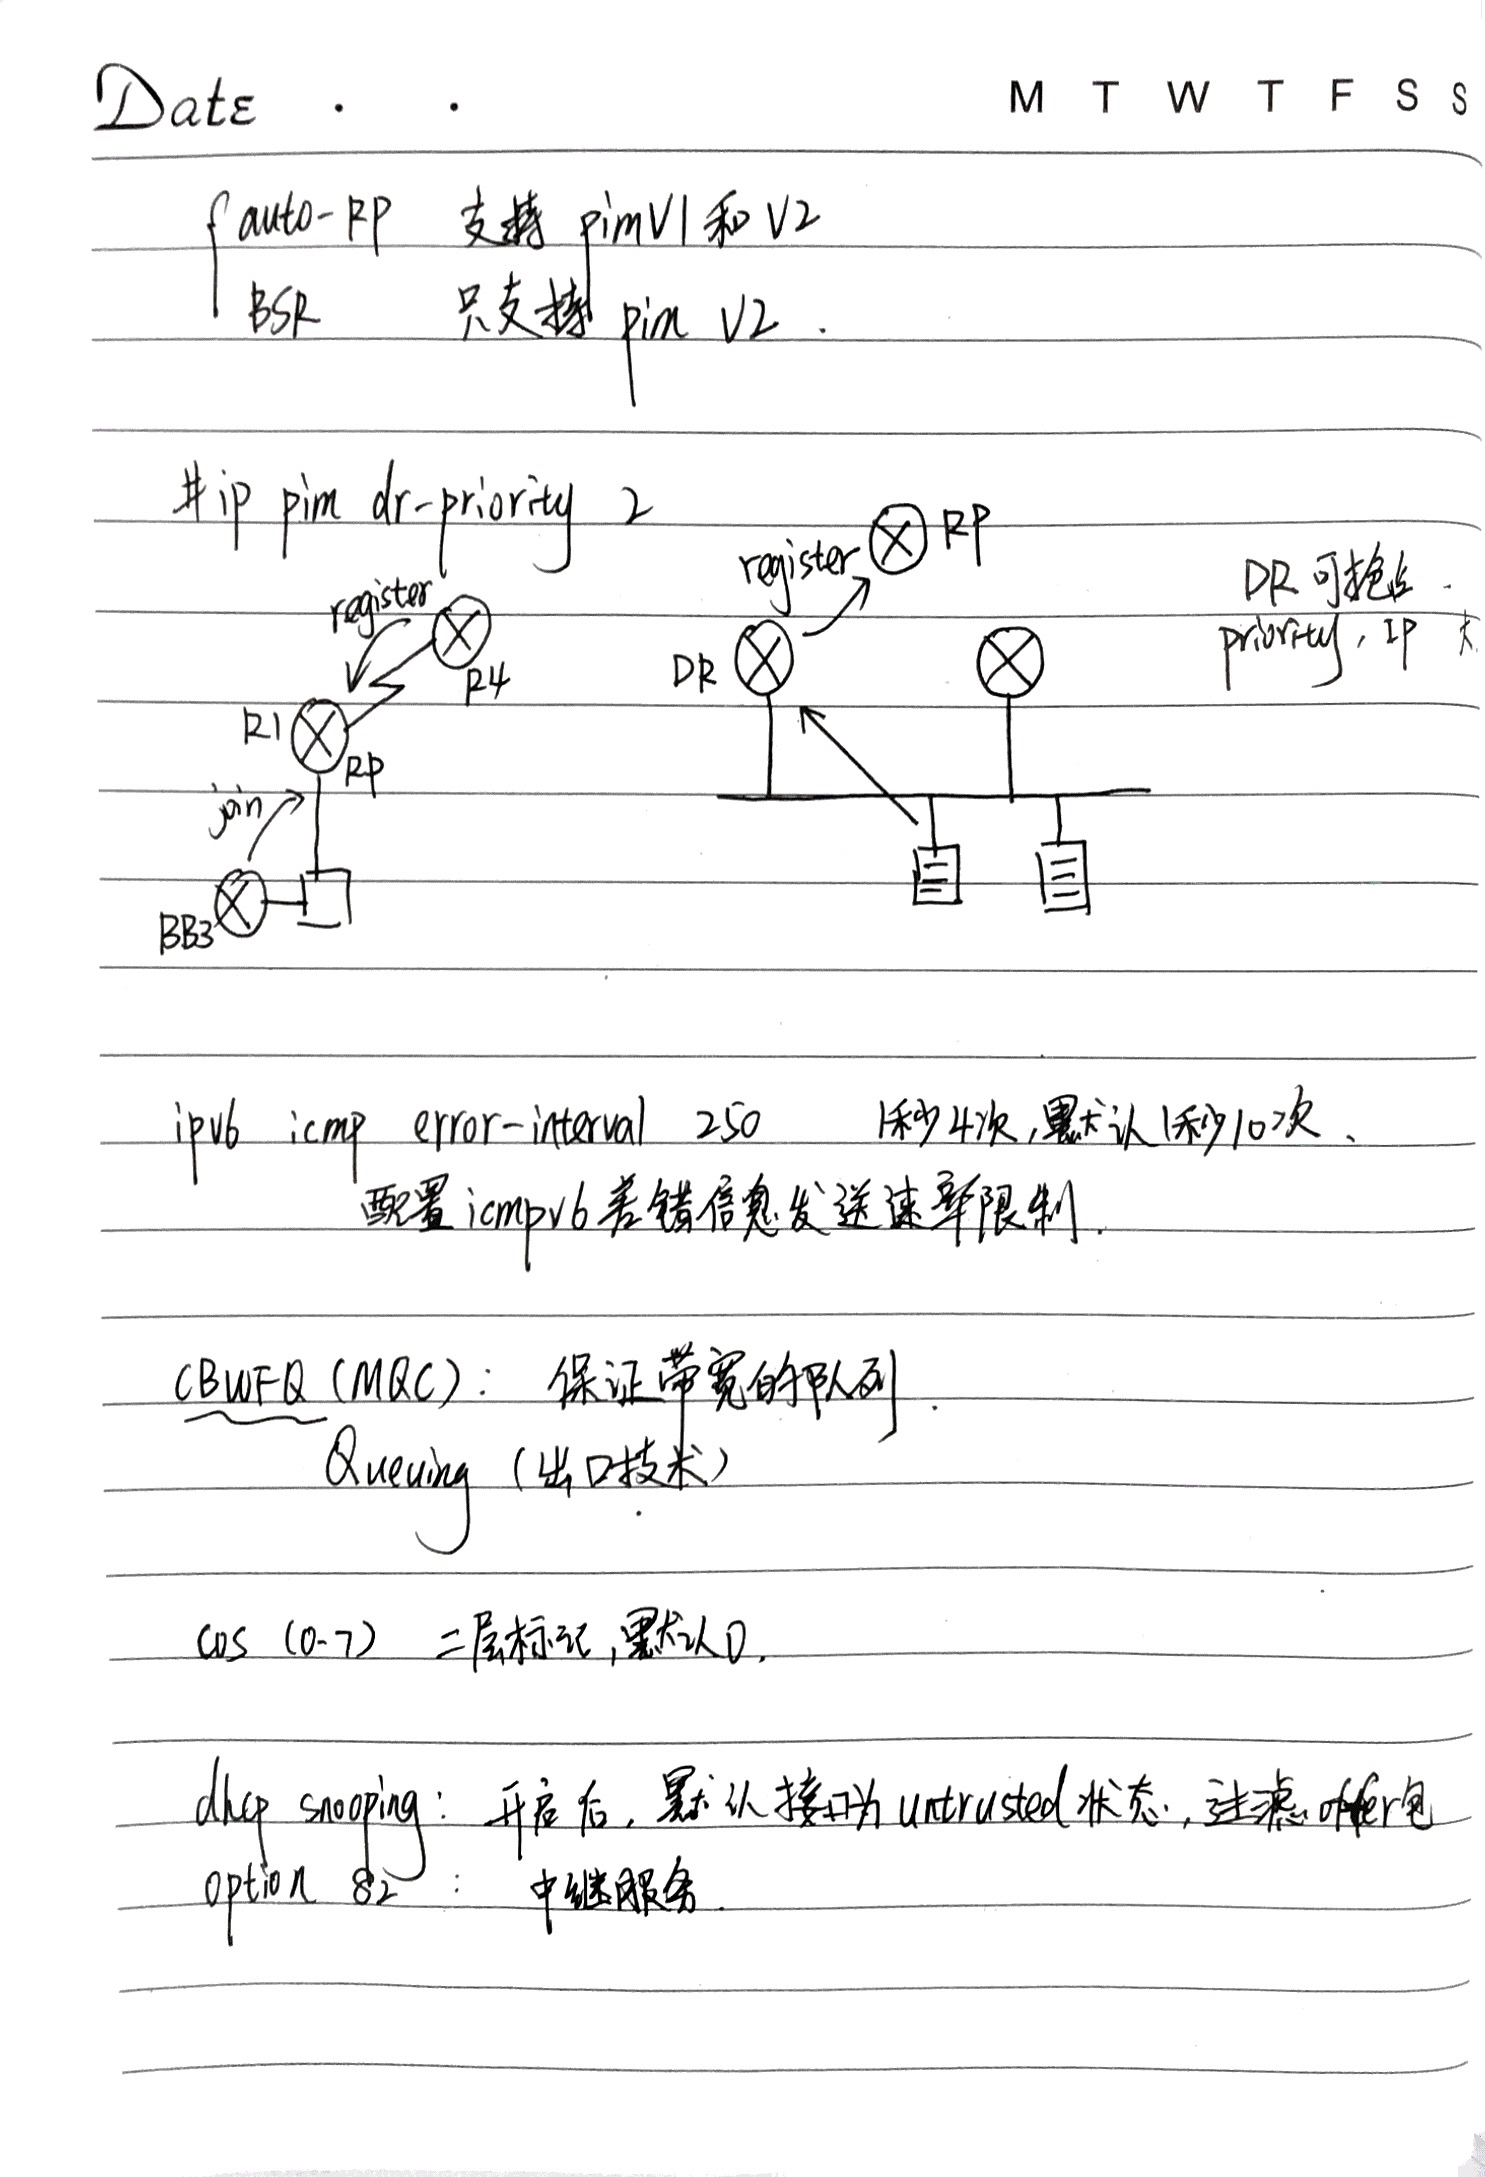 Date . .    M T W T F S S
auto-RP 支持 pimV1和V2
BSR 只支持 pim V2.
#ip pim dr-priority 2
register RP
DR可抢占.
register
priority, IP 大
DR
R4
R1
RP
join
BB3
ipv6 icmp error-interval 250 1秒4次,默认1秒10次、
配置icmpv6差错信息发送速率限制.
CBWFQ (MQC): 保证带宽的队列.
Queuing (出口技术)
cos (0-7) 二层标记,默认0.
dhcp snooping: 开启后,默认接口为untrusted状态,过滤offer包
option 82 : 中继服务.